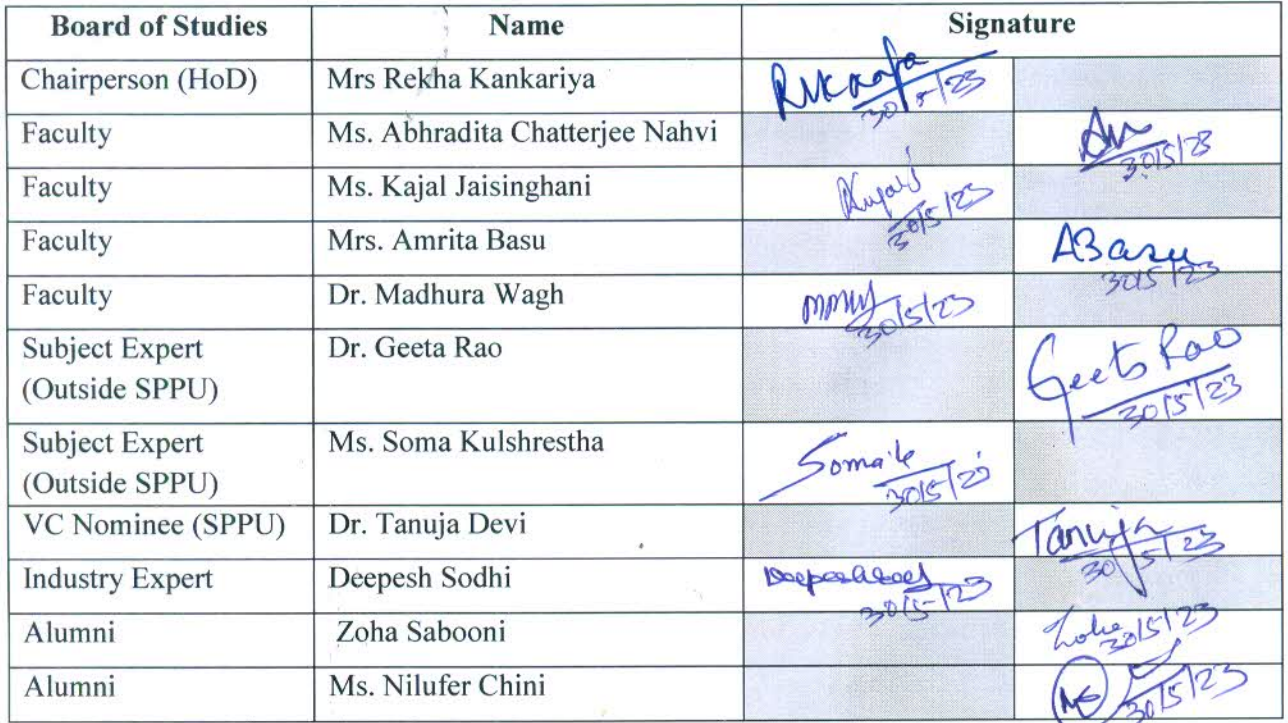 Board of Studies Name Signature
Chairperson (HoD) Mrs Rekha Kankariya
30/5/23
Faculty Ms. Abhradita Chatterjee Nahvi
30/5/23
Faculty Ms. Kajal Jaisinghani
30/5/23
Faculty Mrs. Amrita Basu ABasu
30/5/23
Faculty Dr. Madhura Wagh
30/5/23
Subject Expert Dr. Geeta Rao Geeta Rao
(Outside SPPU) 30/5/23
Subject Expert Ms. Soma Kulshrestha
(Outside SPPU) 30/5/23
VC Nominee (SPPU) Dr. Tanuja Devi Tanuja
30/5/23
Industry Expert Deepesh Sodhi
30/5/23
Alumni Zoha Sabooni Zoha 30/5/23
Alumni Ms. Nilufer Chini
30/5/23